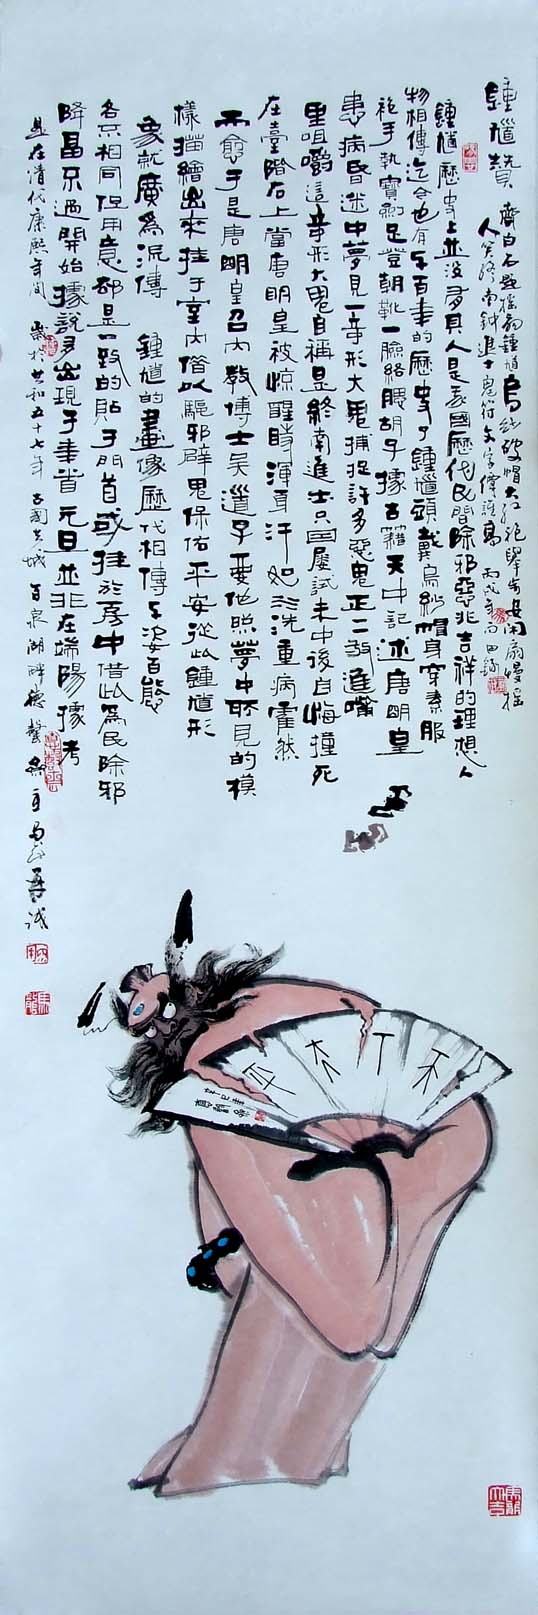 鍾馗赞
齊白石題
烏紗破帽大紅袍舉步安閑扇慢搖
人笑終南鈍進士鬼符文字價雖高 丙戌年
鍾馗歷史上並没有其人是我國歷代民間除邪惡兆吉祥的理想人
物相傳迄今也有千百年的歷史了鍾馗頭戴烏紗帽身穿素服
袍手執寶劍足登朝靴一臉絡腮胡子據古籍天中記述唐明皇
患病昏迷中夢見一奇形大鬼捕捉許多惡鬼正二放進嘴
里咀嚼這奇形大鬼自稱是終南進士只因屢試未中後自悔撞死
在臺階石上當唐明皇被惊醒時渾身汗如水洗重病霍然
而愈于是唐明皇召内教博士吴道子要他照夢中所見的模
樣描繪出來挂于室内俗以驅邪辟鬼保佑平安從此鍾馗形
象就廣爲流傳 鍾馗的畫像歷代相傳千姿百態
各不相同但用意都是一致的貼于門首或挂於房中借此爲民除邪
降畐不過開始據說多出現于年首元旦並非在端陽據考
是在清代康熙年間 歲於共和五十七年古國共城百泉湖畔德馨
天下太平